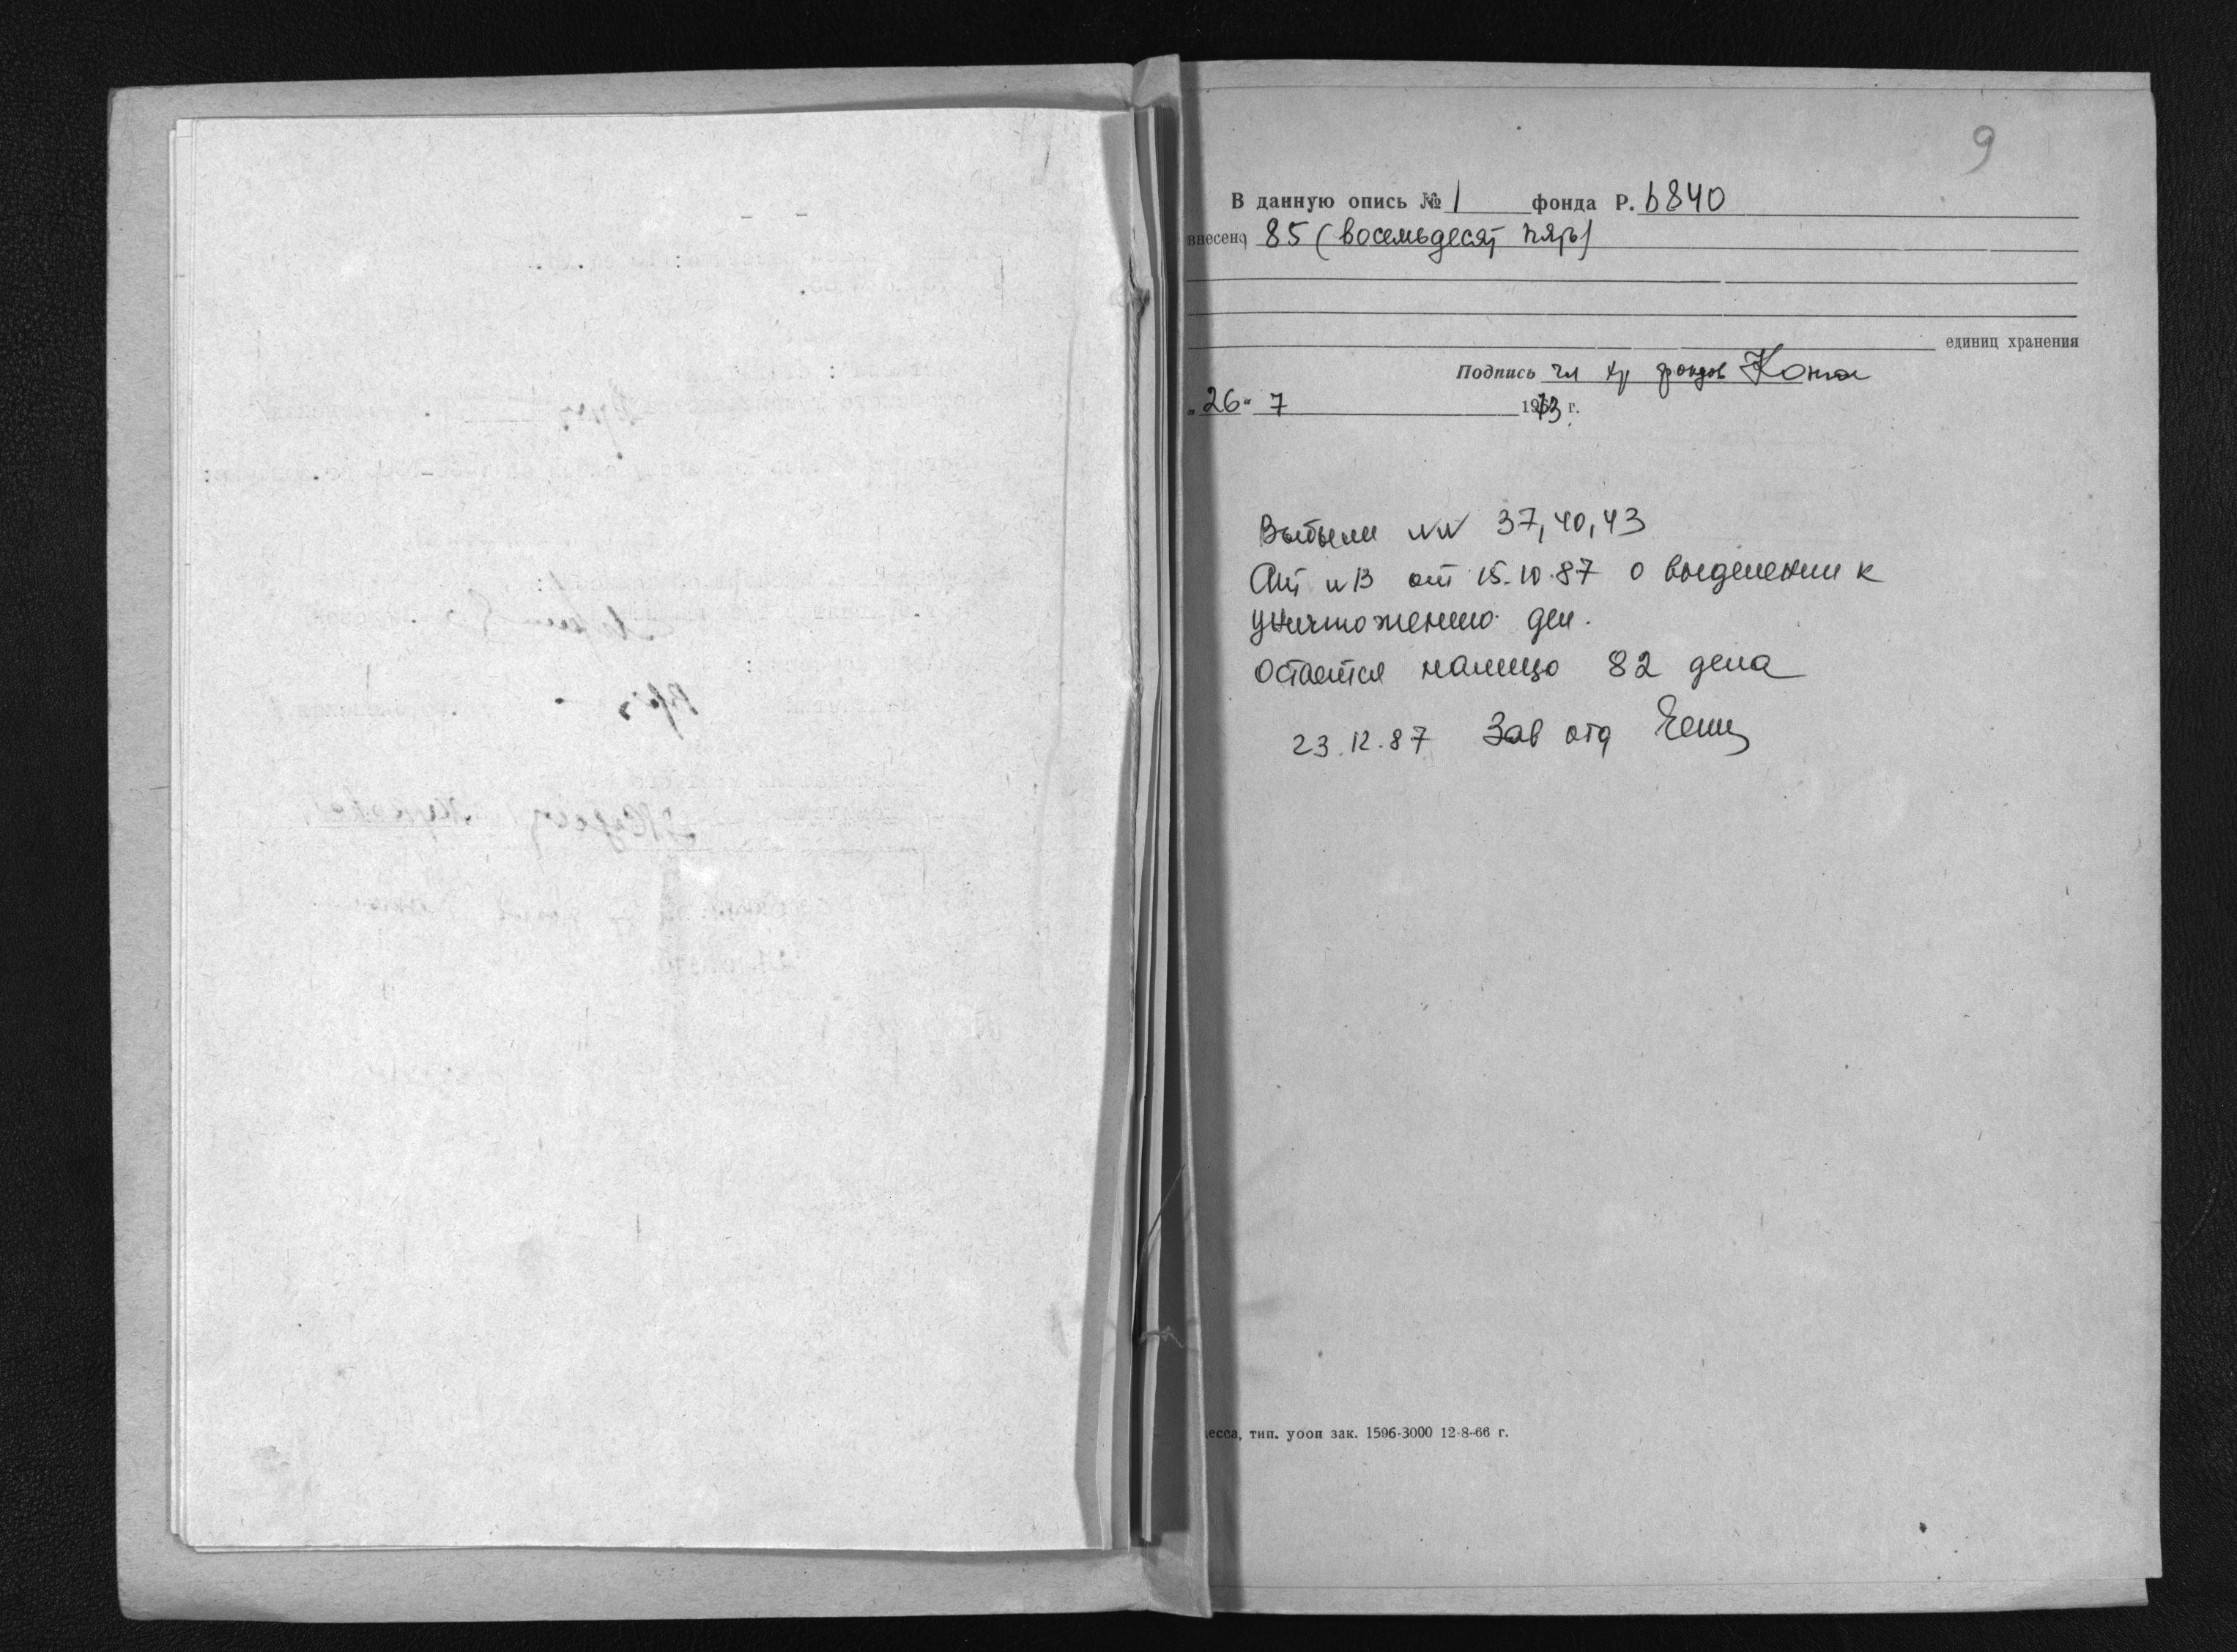 9
В данную опись № 1 фонда Р. 6840
внесено 85 (восемьдесят пять)
единиц хранения
Подпись гл хр фондов
„26“ 7 1973 г.
Выбыли №№ 37, 40, 43
Акт №13 от 15.10.87 о выделении к
уничтожению дел.
Остаётся налицо 82 дела
23.12.87 Зав отд
десса, тип. уооп зак. 1596-3000 12-8-66 г.